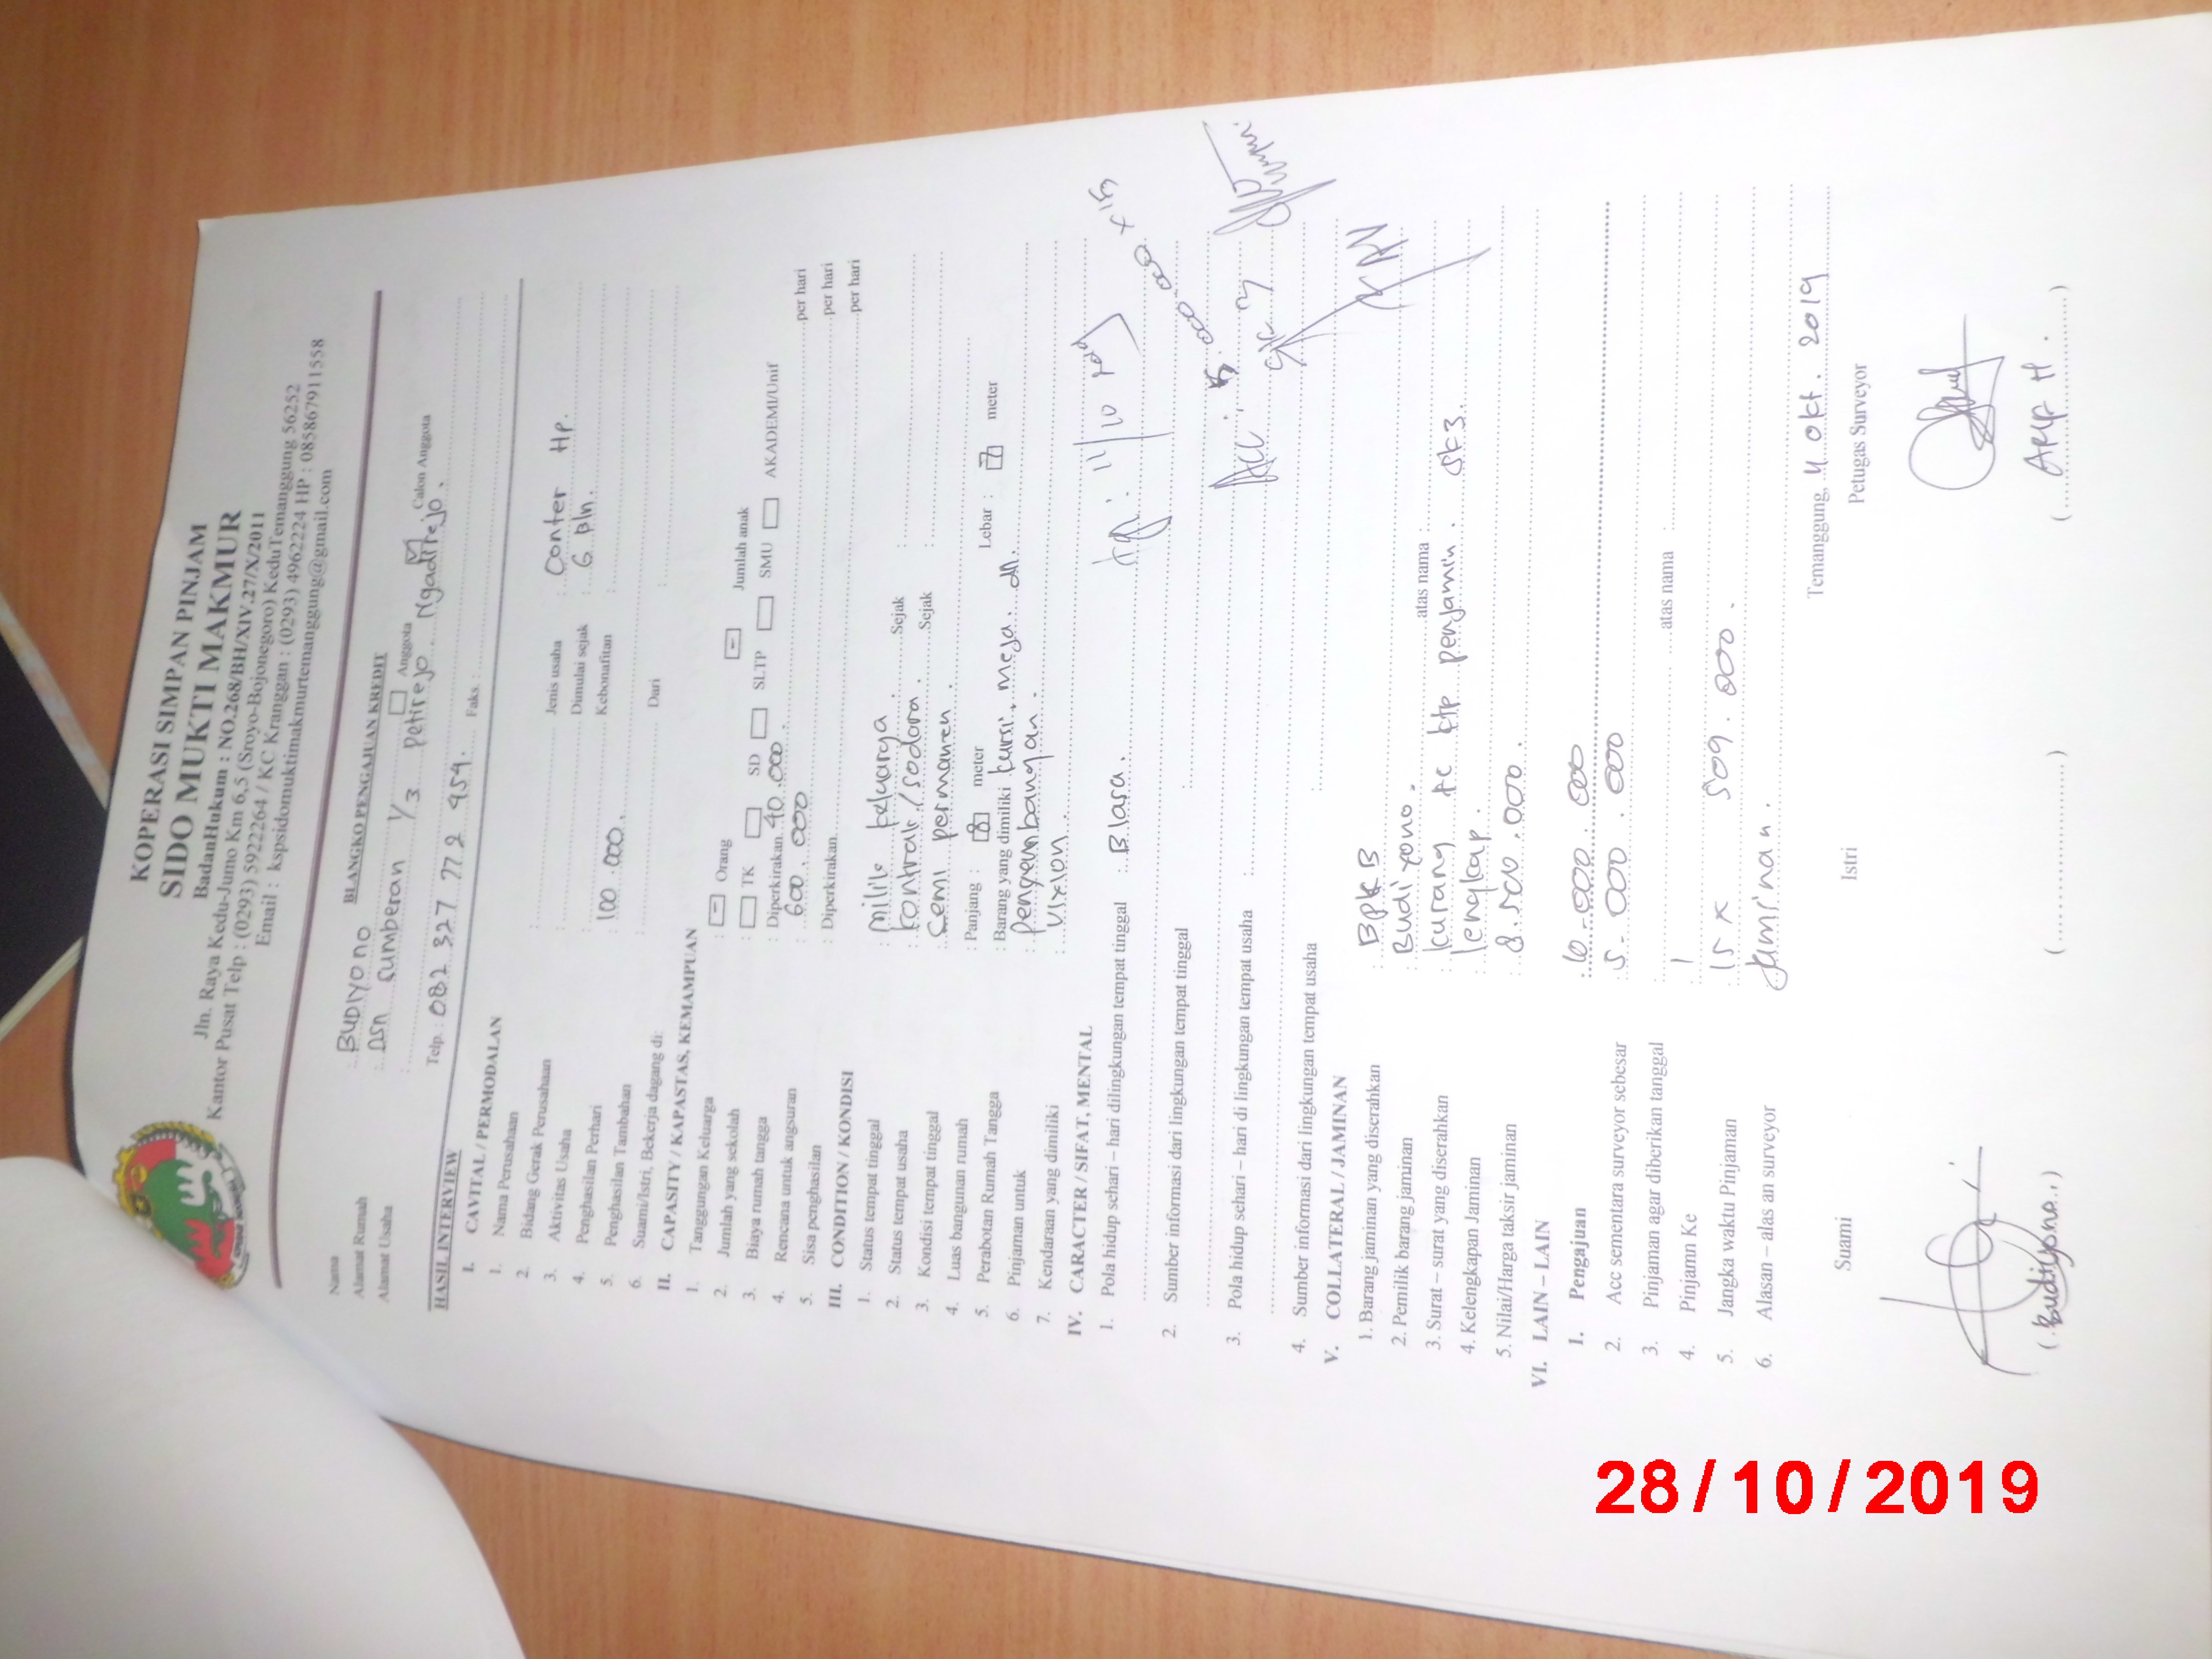 KOPERASI SIMPAN PINJAM
SIDO MUKTI MAKMUR
BadanHukum : NO.268/BH/XIV.27/X/2011
Jln. Raya Kedu-Jumo Km 6,5 (Sroyo-Bojonegoro) KeduTemanggung 56252
Kantor Pusat Telp : (0293) 5922264 / KC Kranggan : (0293) 4962224 HP : 085867911558
Email : kspsidomuktimakmurtemanggung@gmail.com
BLANGKO PENGAJUAN KREDIT
Nama : BUDIYONO Anggota Calon Anggota
Alamat Rumah : Dsn Sumberan 1/3 Petirejo Ngadirejo.
Alamat Usaha :
Telp : 082 327 772 459. Faks. :
HASIL INTERVIEW
I. CAVITAL / PERMODALAN
1. Nama Perusahaan :
2. Bidang Gerak Perusahaan : Jenis usaha : Conter HP.
3. Aktivitas Usaha : Dimulai sejak : 6 bln.
4. Penghasilan Perhari : 100.000. Kebonafitan :
5. Penghasilan Tambahan :
6. Suami/Istri, Bekerja dagang di: Dari :
II. CAPASITY / KAPASTAS, KEMAMPUAN
1. Tanggungan Keluarga : - Orang - Jumlah anak
2. Jumlah yang sekolah : TK SD SLTP SMU AKADEMI/Unif
3. Biaya rumah tangga : Diperkirakan 40.000. per hari
4. Rencana untuk angsuran : 600.000 per hari
5. Sisa penghasilan : Diperkirakan per hari
III. CONDITION / KONDISI
1. Status tempat tinggal : milik keluarga. Sejak :
2. Status tempat usaha : kontrak / sodara. Sejak :
3. Kondisi tempat tinggal : Semi permanen.
4. Luas bangunan rumah : Panjang : 8 meter Lebar : 7 meter
5. Perabotan Rumah Tangga : Barang yang dimiliki kursi, meja. dll.
6. Pinjaman untuk : pengembangan.
7. Kendaraan yang dimiliki : Vixion.
IV. CARACTER / SIFAT, MENTAL
1. Pola hidup sehari – hari dilingkungan tempat tinggal : Biasa.
2. Sumber informasi dari lingkungan tempat tinggal :
3. Pola hidup sehari – hari di lingkungan tempat usaha :
4. Sumber informasi dari lingkungan tempat usaha :
Acc :
V. COLLATERAL / JAMINAN
1. Barang jaminan yang diserahkan : BPKB
2. Pemilik barang jaminan : Budiyono.
3. Surat – surat yang diserahkan : kurang fc ktp penjamin. atas nama :
4. Kelengkapan Jaminan : lengkap.
5. Nilai/Harga taksir jaminan : 8.500.000.
VI. LAIN – LAIN
1. Pengajuan : 6.000.000
2. Acc sementara surveyor sebesar : 5.000.000
3. Pinjaman agar diberikan tanggal : atas nama :
4. Pinjamn Ke : 1
5. Jangka waktu Pinjaman : 15 x 509.000.
6. Alasan – alas an surveyor : Jaminan.
Temanggung, 4 Okt. 2019
Suami Istri Petugas Surveyor
(Budiyono) (..........) (ARIF H.)
28/10/2019